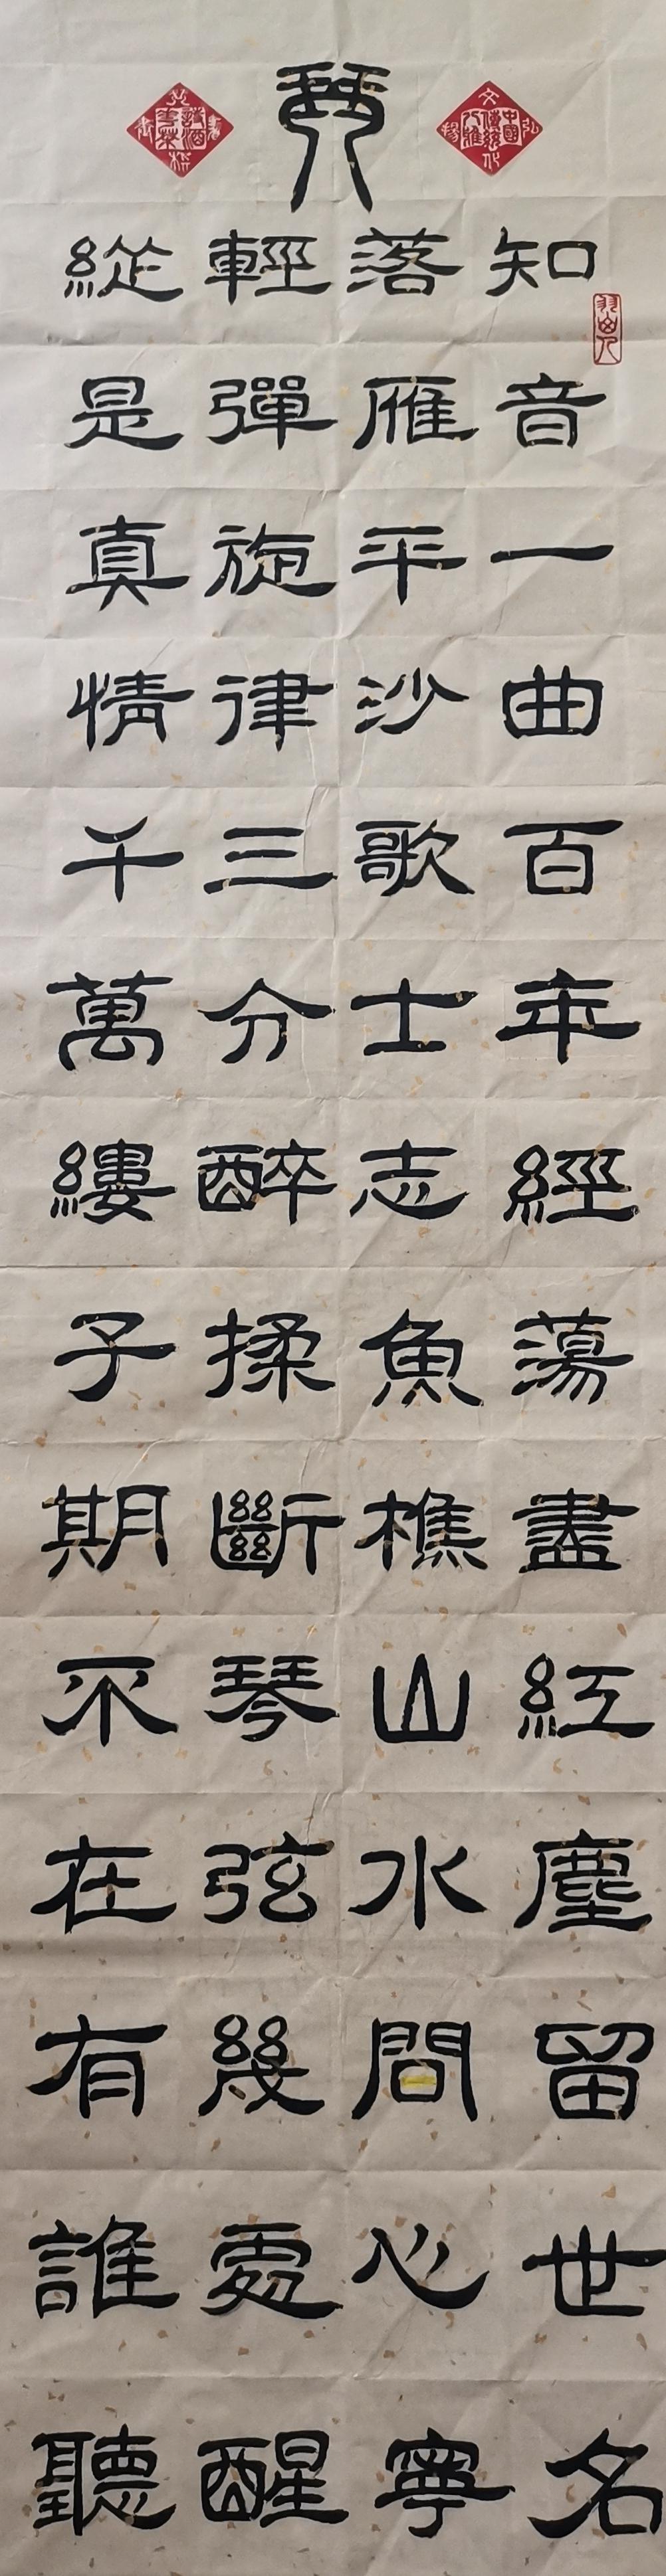 琴
知音一曲百年經蕩盡紅塵留世名
落雁平沙歌士志魚樵山水問心寧
輕彈旋律三分醉揉斷琴弦幾處醒
縱是真情千萬縷子期不在有誰聽